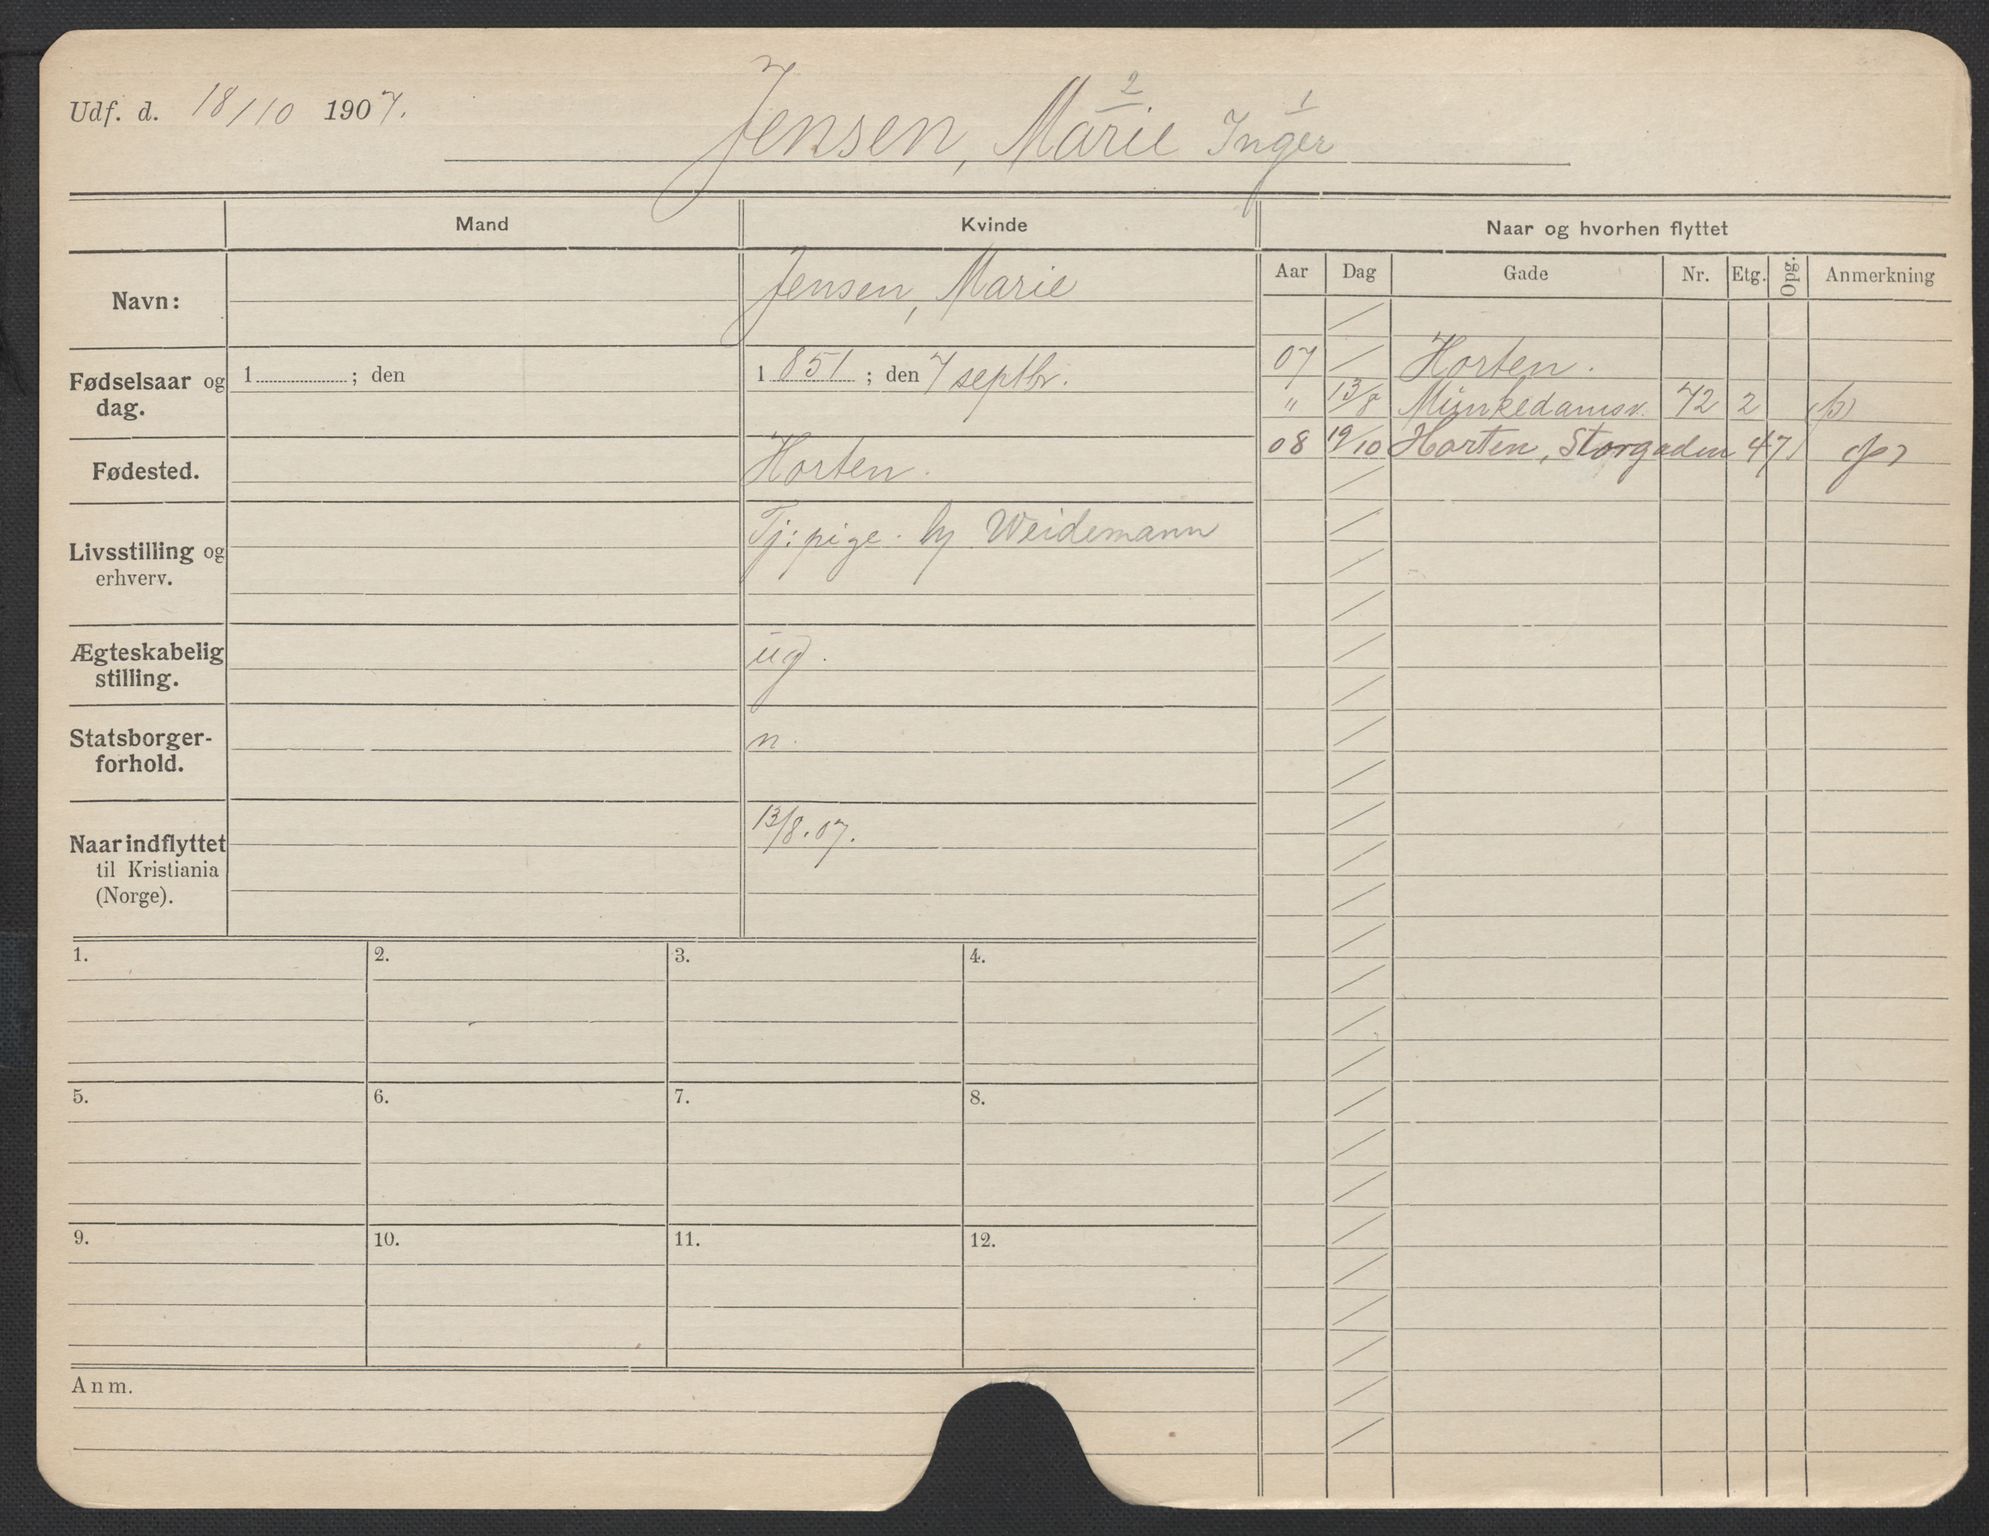 Udf. d. 18/10 1907.
2 1
Jensen, Marie Inger
Mand Kvinde Naar og hvorhen flyttet
Aar Dag Gade Nr. Etg. Opg. Anmerkning
Navn: Jensen, Marie
07 Horten.
Fødselsaar og dag. 1 ; den 1851 ; den 7 septbr.
" 13/8 Munkedamsv. 72 2 (p)
08 19/10 Horten, Storgaden 47 (p)
Fødested. Horten.
Livsstilling og erhverv. Tj: pige. hj Weidemann
Ægteskabelig stilling. ug.
Statsborger-
forhold. n.
Naar indflyttet
til Kristiania
(Norge). 13/8.07.
1. 2. 3. 4.
5. 6. 7. 8.
9. 10. 11. 12.
Anm.